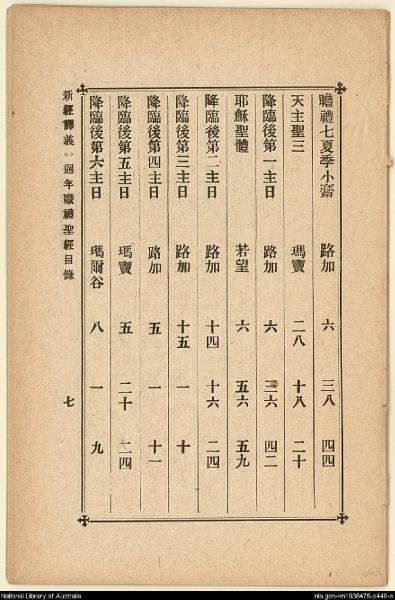 瞻禮七夏季小齋 路加 六 三八 四四
天主聖三 瑪竇 二八 十八 二十
降臨後第一主日 路加 六 三六 四二
耶穌聖體 若望 六 五六 五九
降臨後第二主日 路加 十四 十六 二四
降臨後第三主日 路加 十五 一 十
降臨後第四主日 路加 五 一 十一
降臨後第五主日 瑪竇 五 二十 二四
降臨後第六主日 瑪爾谷 八 一 九
新經譯義 週年瞻禮聖經目錄 七
National Library of Australia
nla.gen-vn1938475-s448-e